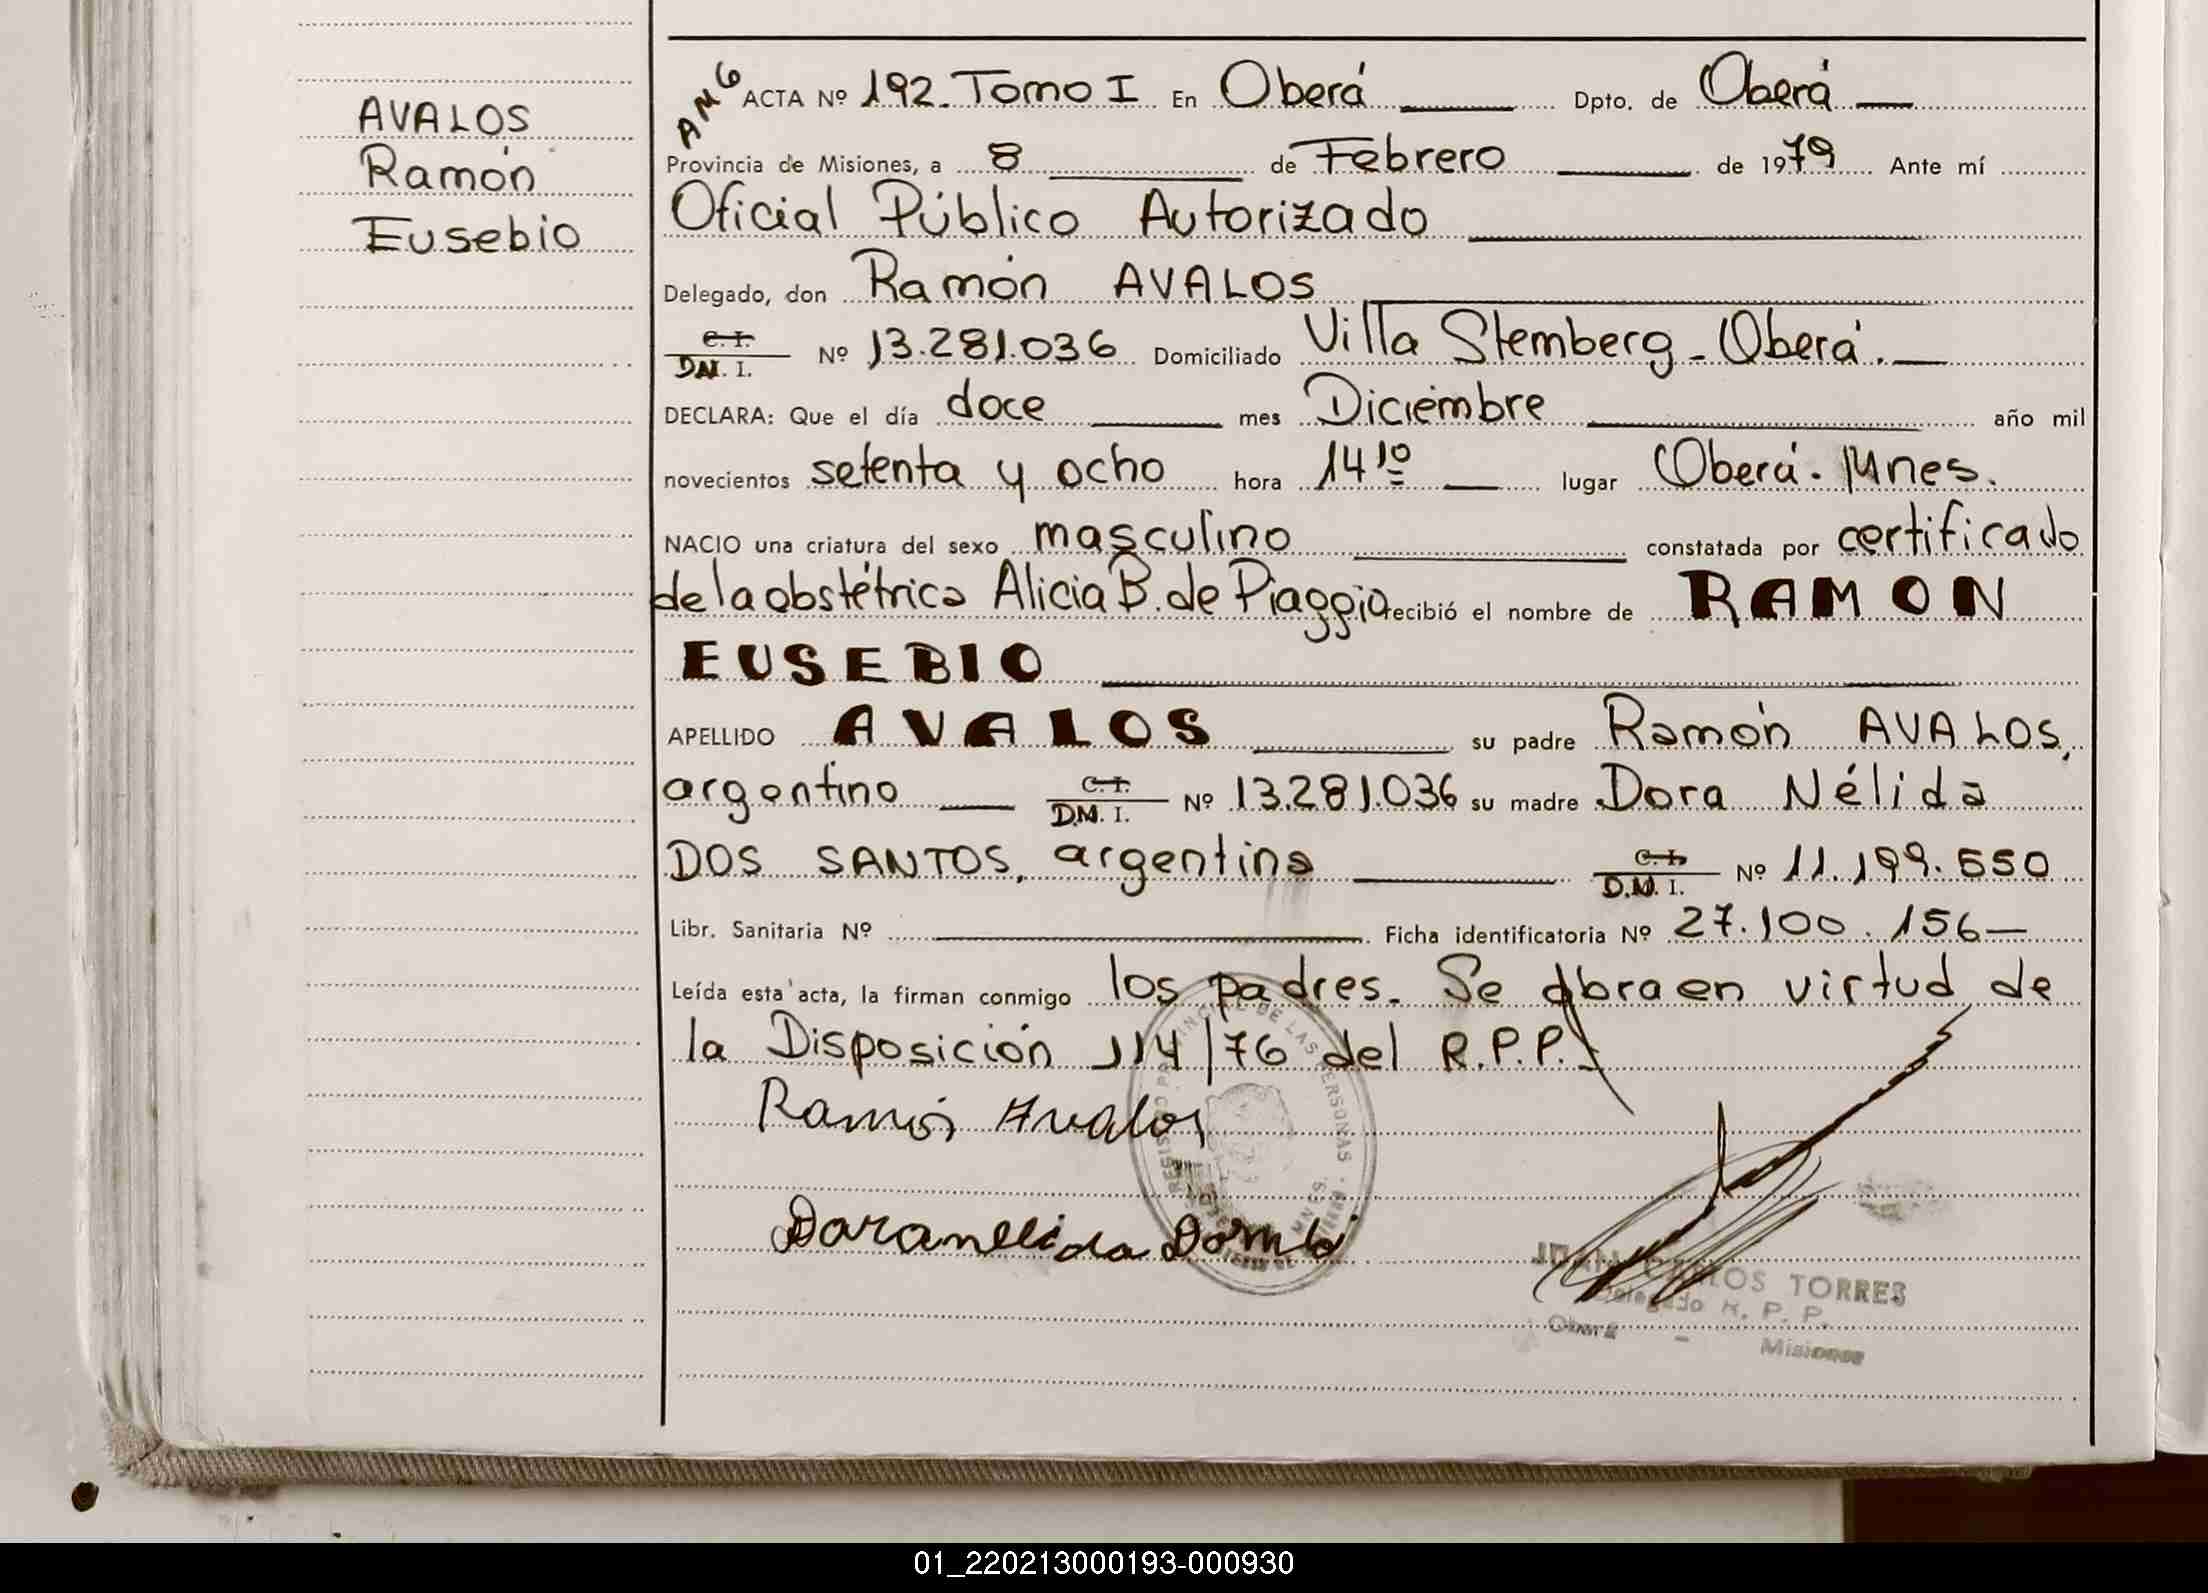 AVALOS
Ramón
Eusebio
AMG
ACTA Nº 192. Tomo I En Oberá Dpto. de Oberá
Provincia de Misiones, a 8 de Febrero de 1979 Ante mí
Oficial Público Autorizado
Delegado, don Ramón AVALOS
C. I.
D.N. I. Nº 13.281.036 Domiciliado Villa Stemberg - Oberá.
DECLARA: Que el día doce mes Diciembre año mil
novecientos setenta y ocho hora 14 10 lugar Oberá - Mnes.
NACIO una criatura del sexo masculino constatada por certificado
de la obstétrica Alicia B. de Piaggio recibió el nombre de RAMON
EUSEBIO
APELLIDO AVALOS su padre Ramón AVALOS,
argentino C. I. D.N. I. Nº 13.281.036 su madre Dora Nélida
DOS SANTOS, argentina C. I. D.N. I. Nº 11.199.550
Libr. Sanitaria Nº Ficha identificatoria Nº 27.100.156
Leída esta acta, la firman conmigo los padres. Se obra en virtud de
la Disposición 114/76 del R.P.P.
Ramón Avalos
JUAN CARLOS TORRES
Delegado R. P. P.
Oberá - Misiones
01_220213000193-000930